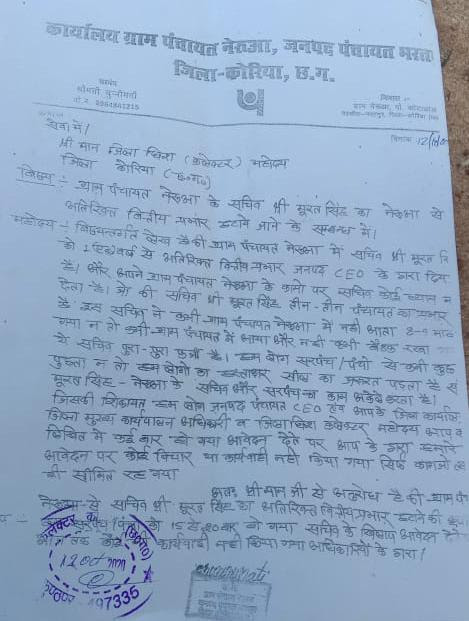 कार्यालय ग्राम पंचायत नेरुआ, जनपद पंचायत भरत
जिला-कोरिया, छ.ग.
सरपंच
श्रीमती चुन्नीमती
निवास :-
दिनांक 12/10
सेवा में,
श्री मान जिला धिश (कलेक्टर) महोदय
जिला कोरिया (छ०ग०)
विषय :- ग्राम पंचायत नेरुआ के सचिव श्री सूरत सिंह का नेरुआ से
अतिरिक्त वित्तीय प्रभार हटाये जाने के सम्बन्ध में।
महोदय - विषयान्तर्गत लेख है की ग्राम पंचायत नेरुआ में सचिव श्री सूरत सि
को 1 वर्ष से अतिरिक्त वित्तीय प्रभार जनपद CEO के द्वारा दिया
है। और अपने ग्राम पंचायत नेरुआ के कामो पर सचिव कोई ध्यान न
देता है। जो की सचिव श्री सूरत सिंह तीन-तीन पंचायत का प्रभार
है इस सचिव ने कभी ग्राम पंचायत नेरुआ में नही आता 8-9 माह
गया न तो कभी ग्राम पंचायत में आया और न ही कभी बैठक रखा
ये सचिव पुरा-पुरा फर्जी है। हम लोग सरपंच/पंचो से कभी कुछ
पुछता न तो हम लोगो का हस्ताक्षर सील का जरूरत पड़ता है
सूरत सिंह - नेरुआ के सचिव और सरपंच का काम अकेले करता है।
जिसकी शिकायत हम लोग जनपद पंचायत CEO एवं आपके जिला कार्यालय
जिला मुख्य कार्यपालन अधिकारी व जिलाधिश कलेक्टर महोदय
लिखित में कई बार हो गया आवेदन देते पर आप के द्वारा हमारे
आवेदन पर कोई विचार या कार्यवाही नही किया गया सिर्फ कागजो
ही सीमित रह गया
अतः श्री मान जी से अनुरोध है की ग्राम पं
नेरुआ से सचिव श्री सूरत सिंह का अतिरिक्त वित्तीय प्रभार हटाने की कृपा
सरपंच/पंचो को 15 से 20 बार हो गया सचिव के खिलाफ आवेदन देते
तक कोई कार्यवाही नही किया गया अधिकारियो के द्वारा।
कलेक्टर का
12 Oct
497335